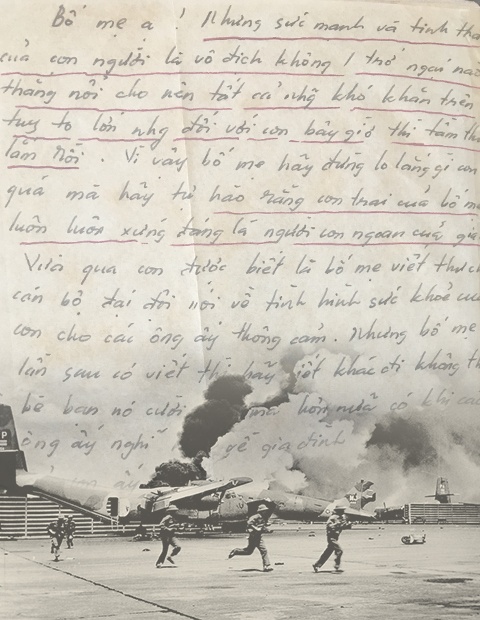 Bố mẹ ạ ! Nhưng sức mạnh và tinh thầ
của con người là vô địch không 1 trở ngại nào
thắng nổi cho nên tất cả nhg khó khăn trên
tuy to lớn nhg đối với con bây giờ thì tầm th
lắm rồi. Vì vậy bố mẹ hãy đừng lo lắng gì con
quá mà hãy tự hào rằng con trai của bố mẹ
luôn luôn xứng đáng là người con ngoan của gia
Vừa qua con được biết là bố mẹ viết thư ch
cán bộ đại đội nói về tình hình sức khỏe của
con cho các ông ấy thông cảm. Nhưng bố mẹ
lần sau có viết thì hãy viết khác đi không th
bè bạn nó cười hơn nữa có khi các
ông ấy nghĩ về gia đình
ông ấy
P